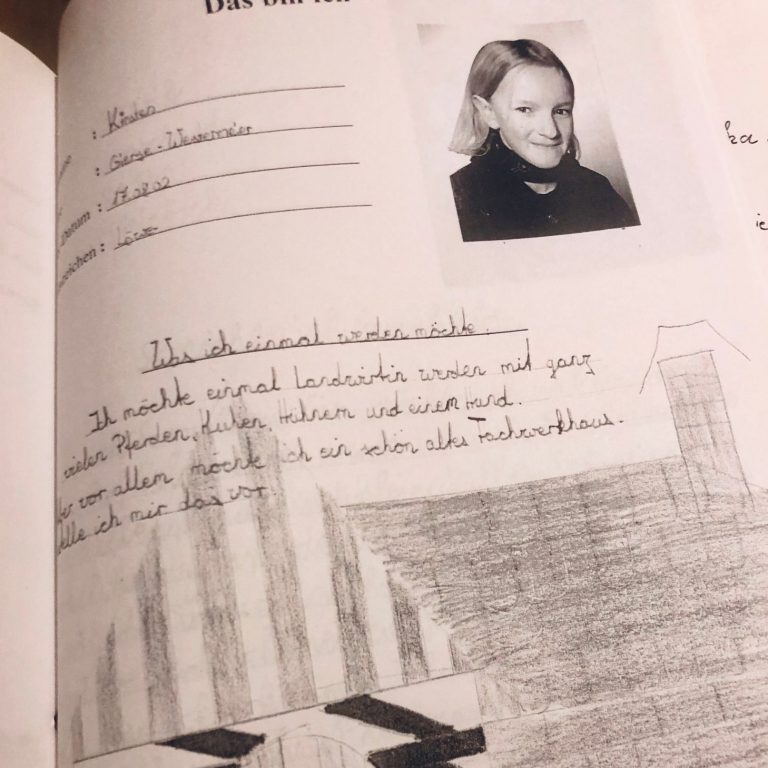 Das bin ich
: Kirsten
: Gierse-Westermeier
Datum : 17.08.02
zeichen : Löwe
Was ich einmal werden möchte.
Ich möchte einmal Landwirtin werden mit ganz
vielen Pferden, Kühen, Hühnern und einem Hund.
vor allem möchte ich ein schön altes Fachwerkhaus.
ich mir das vor.